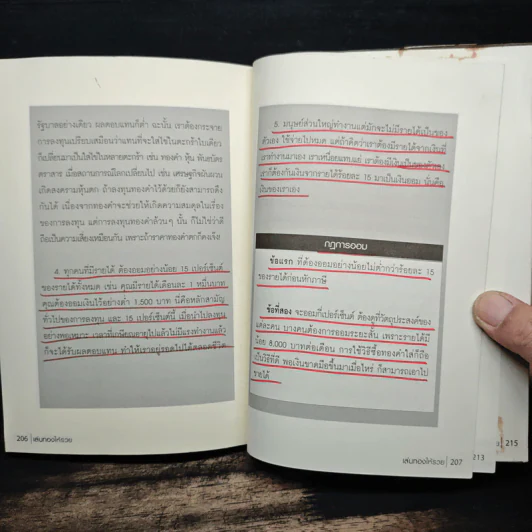 รัฐบาลอย่างเดียว ผลตอบแทนก็ต่ำ ฉะนั้น เราต้องกระจาย
การลงทุนเปรียบเสมือนว่าแทนที่จะใส่ไข่ในตะกร้าใบเดียว
ก็เปลี่ยนมาเป็นใส่ไข่ในหลายตะกร้า เช่น ทองคำ หุ้น พันธบัตร
ตราสาร เมื่อสถานการณ์โลกเปลี่ยนไป เช่น เศรษฐกิจผันผวน
เกิดสงครามหุ้นตก ถ้าลงทุนทองคำไว้ด้วยก็ยังสามารถดึง
กันได้ เนื่องจากทองคำจะช่วยให้เกิดความสมดุลในเรื่อง
ของการลงทุน แต่การลงทุนทองคำล้วนๆ นั้น ก็ไม่ใช่ว่าดี
ถือเป็นความเสี่ยงเหมือนกัน เพราะถ้าราคาทองคำตกก็คงเจ๊ง!
4. ทุกคนที่มีรายได้ ต้องออมอย่างน้อย 15 เปอร์เซ็นต์
ของรายได้ทั้งหมด เช่น คุณมีรายได้เดือนละ 1 หมื่นบาท
คุณต้องออมเงินไว้อย่างต่ำ 1,500 บาท นี่คือหลักสามัญ
ทั่วไปของการลงทุน และ 15 เปอร์เซ็นต์นี้ เมื่อนำไปลงทุน
อย่างพอเหมาะ เวลาที่เกษียณอายุไปแล้วไม่มีแรงทำงานแล้ว
ก็จะได้รับผลตอบแทน ทำให้เราอยู่รอดไปได้ตลอดชีวิต
206 เล่นทองให้รวย
5. มนุษย์ส่วนใหญ่ทำงานแต่มักจะไม่มีรายได้เป็นของ
ตัวเอง ใช้จ่ายไปหมด แต่ถ้าคิดว่าเราต้องมีรายได้จากเงินที่
เราทำงานมาเอง เราเหนื่อยแทบแย่ เราต้องมีเงินเป็นของตัวเอง
เราก็ต้องกันเงินจากรายได้ร้อยละ 15 มาเป็นเงินออม นั่นคือ
เงินของเราเอง
กฎการออม
ข้อแรก ที่ต้องออมอย่างน้อยไม่ต่ำกว่าร้อยละ 15
ของรายได้ก่อนหักภาษี
ข้อที่สอง จะออมกี่เปอร์เซ็นต์ ต้องดูที่วัตถุประสงค์ของ
แต่ละคน บางคนต้องการออมระยะสั้น เพราะรายได้มี
น้อย 8,000 บาทต่อเดือน การใช้วิธีซื้อทองคำใส่ก็ถือ
เป็นวิธีที่ดี พอเงินขาดมือขึ้นมาเมื่อไหร่ ก็สามารถเอาไป
รายได้
เล่นทองให้รวย 207
213
215